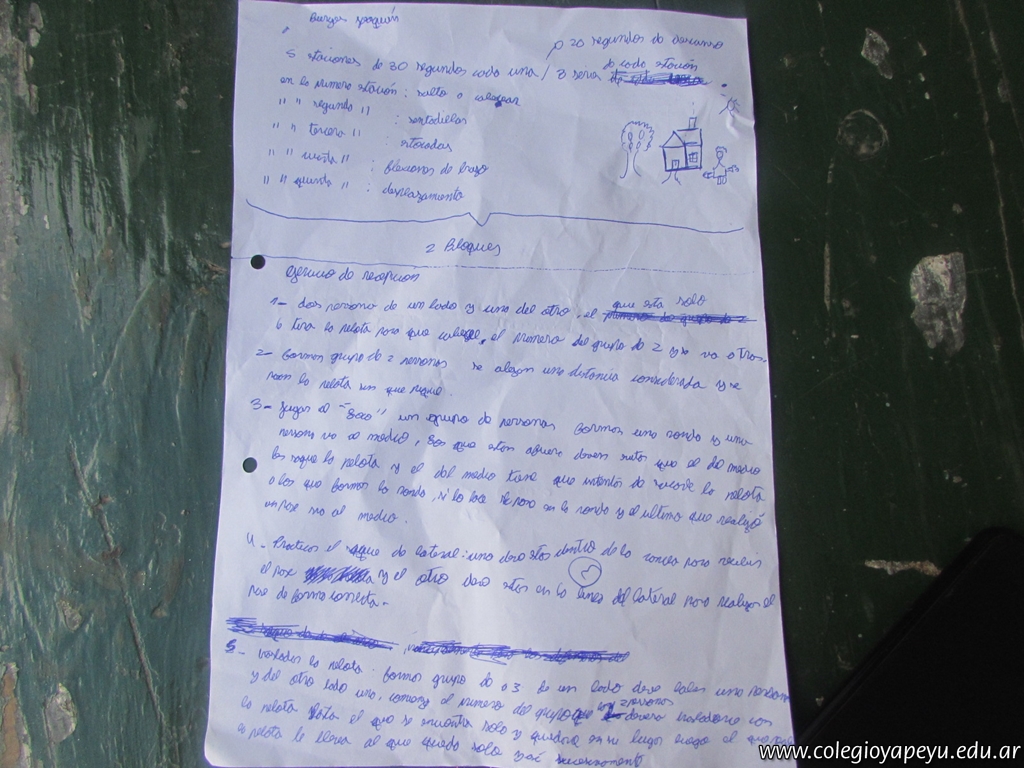 Burgos Joaquín
20 segundos de descanso
5 staciones de 30 segundos cada una / 3 series de cada estación
en la primera estación: salto a cabecear
" " segunda " : sentadillas
" " tercera " : estocadas
" " cuarta " : flexiones de brazo
" " quinta " : desplazamiento
2 Bloques
ejercicio de recepcion
1- dos persona de un lado y uno del otro, el que esta solo
tira la pelota para que cabecee, el primero del grupo de 2 y se va atras.
2- formar grupo de 2 personas se alejan una distancia considerada y se
pasan la pelota sin que pique.
3- Jugar al "loco" un grupo de personas forman una ronda y una
persona va al medio, los que estan afuera deven que el del medio
los saque la pelota y el del medio tiene que intentar de sacarle la pelota
a los que forman la ronda, si lo hace se pone en la ronda y el ultimo que realizó
un pase va al medio.
4- Practicar el saque de lateral: uno deve estar dentro de la cancha para recibir
el pase y el otro deve estar en la linea del lateral para realizar el
pase de forma correcta.
5- trasladar la pelota: formar grupo de a 3 de un lado deve haber una persona
y del otro lado uno, comenza el primero del grupo con 2 personas trasladarse con
la pelota el que se encontra solo y quedarse en su lugar luego el que
la pelota le lleva al que quedo solo y así sucesivamente
www.colegioyapeyu.edu.ar